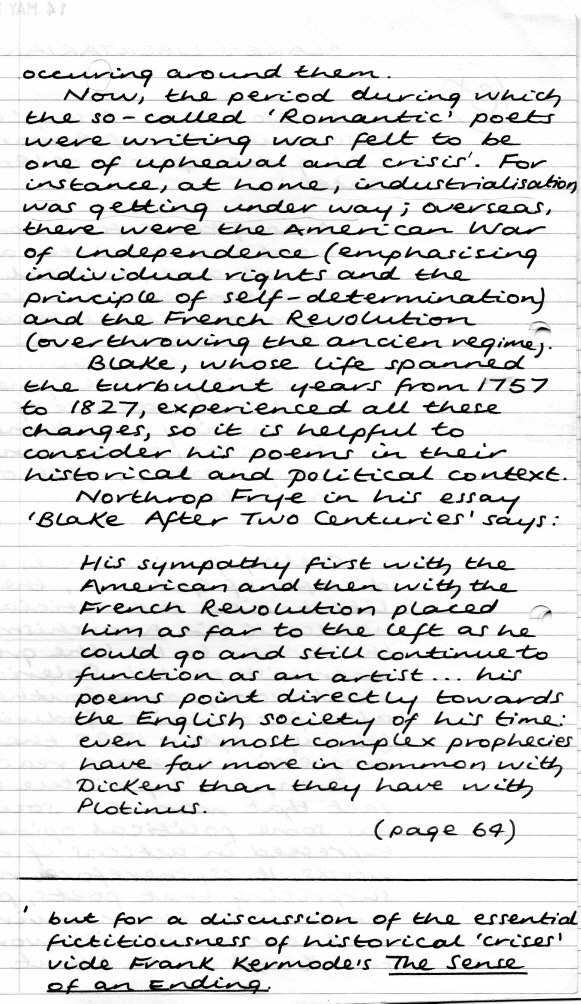 occuring around them.
Now, the period during which
the so-called 'Romantic' poets
were writing was felt to be
one of upheaval and crisis¹. For
instance, at home, industrialisation
was getting under way; overseas,
there were the American War
of Independence (emphasising
individual rights and the
principle of self-determination)
and the French Revolution
(overthrowing the ancien regime).
Blake, whose life spanned
the turbulent years from 1757
to 1827, experienced all these
changes, so it is helpful to
consider his poems in their
historical and political context.
Northrop Frye in his essay
'Blake After Two Centuries' says:
His sympathy first with the
American and then with the
French Revolution placed
him as far to the left as he
could go and still continue to
function as an artist... his
poems point directly towards
the English society of his time:
even his most complex prophecies
have far more in common with
Dickens than they have with
Plotinus.
(page 64)
¹ but for a discussion of the essential
fictitiousness of historical 'crises'
vide Frank Kermode's The Sense
of an Ending.